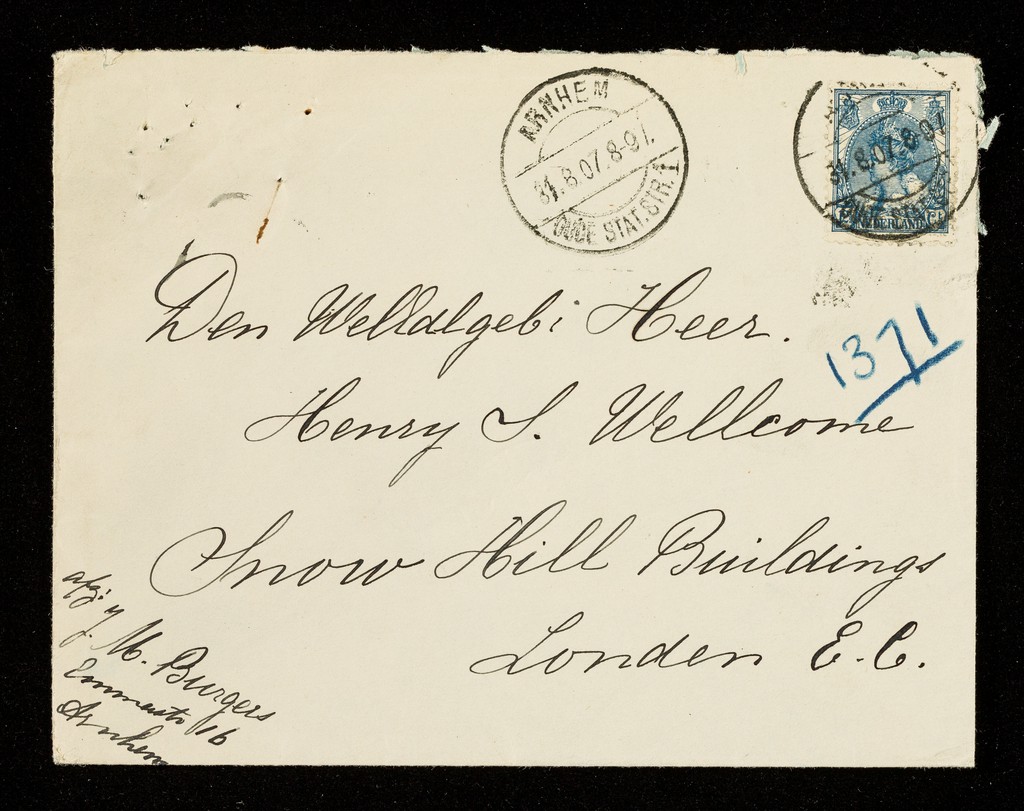 ARNHEM
31.8.07.8-9V.
OUDE STAT.STR.1
31.8.07.8-9V
NEDERLAND
Den Weledelgeb: Heer.
1371
Henry S. Wellcome
Snow Hill Buildings
London E.C.
afz: J. M. Burgers
Emmastr 16
Arnhem